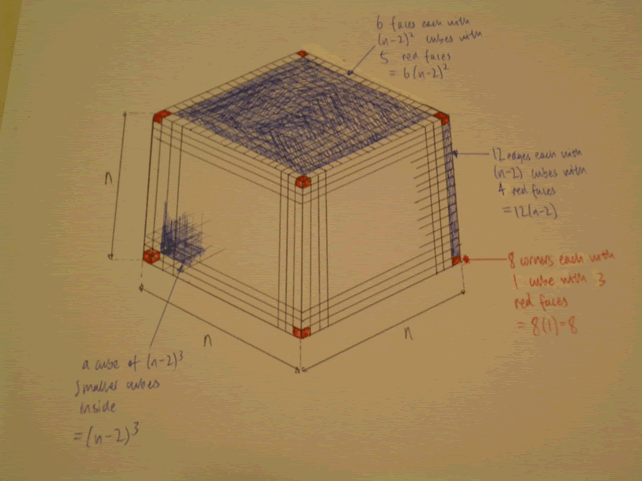 6 faces each with
(n-2)² cubes with
5 red faces
= 6(n-2)²
n
12 edges each with
(n-2) cubes with
4 red faces
= 12(n-2)
8 corners each with
1 cube with 3
red faces
= 8(1)=8
n
n
a cube of (n-2)³
smaller cubes
inside
= (n-2)³